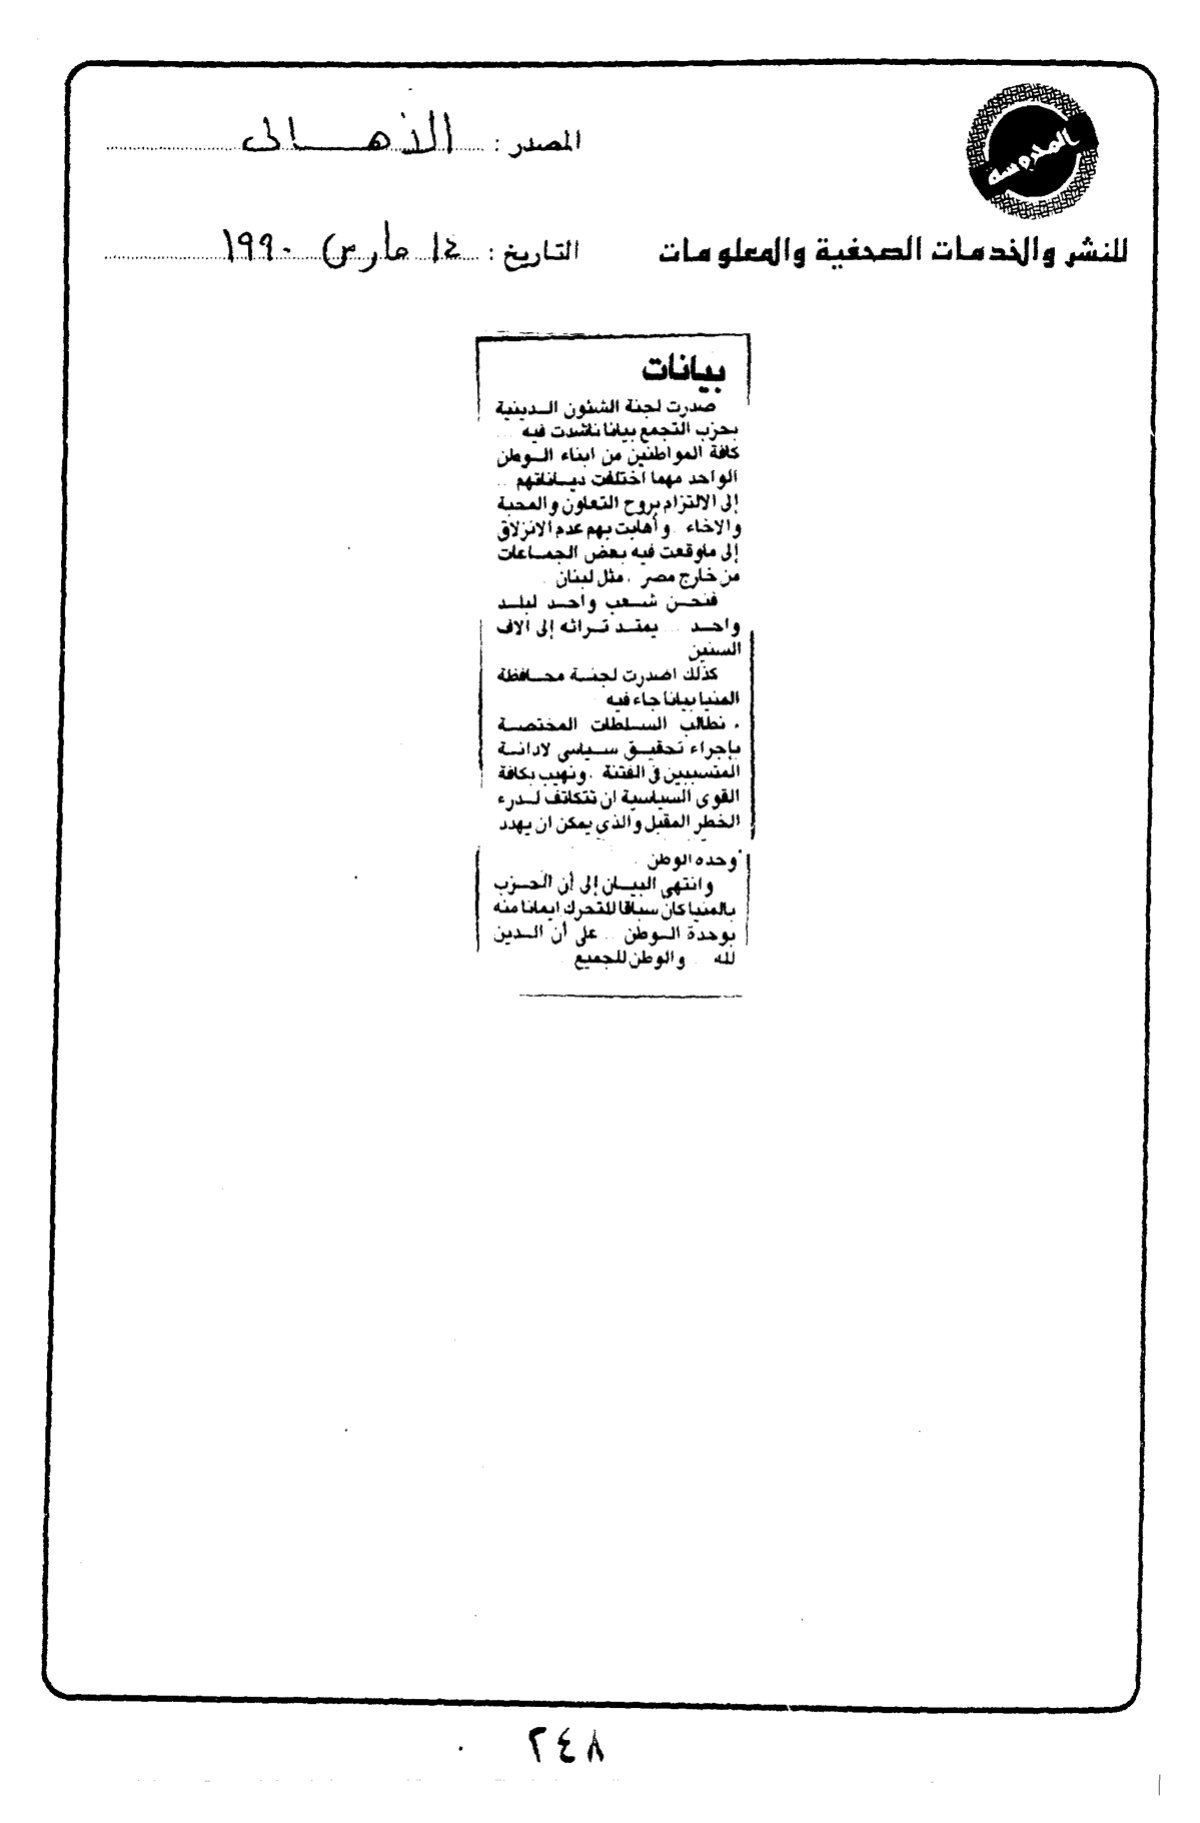 المحروسة
المصدر : الأهالى
للنشر والخدمات الصحفية والمعلومات
التاريخ : ١٤ مارس ١٩٩٠
بيانات
صدرت لجنة الشئون الدينية
بحزب التجمع بيانا ناشدت فيه ..
كافة المواطنين من ابناء الوطن
الواحد مهما اختلفت دياناتهم ..
إلى الالتزام بروح التعاون والمحبة
والإخاء . وأهابت بهم عدم الانزلاق
إلى ماوقعت فيه بعض الجماعات
من خارج مصر . مثل لبنان .
فنحن شعب واحد لبلد
واحد ... يمتد تراثه إلى الاف
السنين
كذلك اصدرت لجنة محافظة
المنيا بيانا جاء فيه
. نطالب السلطات المختصة
بإجراء تحقيق سياسي لادانة
المتسببين فى الفتنة . ونهيب بكافة
القوى السياسية ان تتكاتف لدرء
الخطر المقبل والذي يمكن ان يهدد
وحده الوطن .
وانتهى البيان إلى أن الحزب
بالمنيا كان سباقا للتحرك إيمانا منه
بوحدة الوطن .. على أن الدين
لله .. والوطن للجميع
٢٤٨